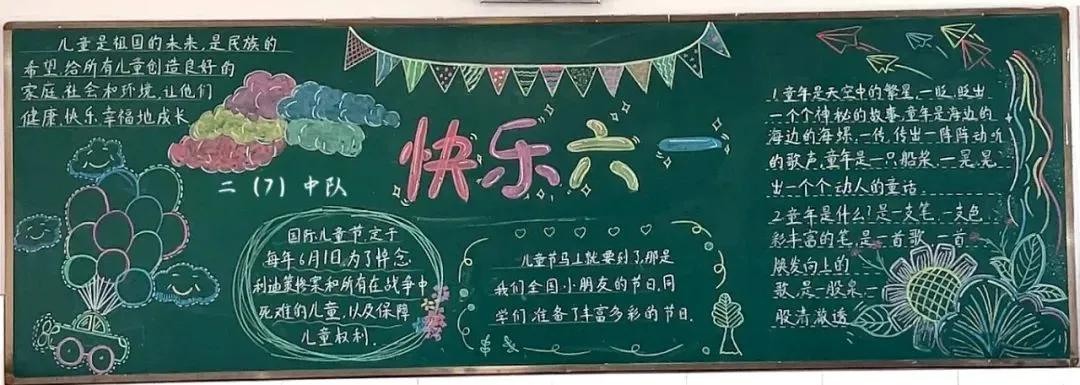 儿童是祖国的未来,是民族的
希望,给所有儿童创造良好的
家庭.社会和环境,让他们
健康.快乐.幸福地成长
快乐六一
二(7)中队
国际儿童节定于
每年6月1日,为了悼念
利迪策惨案和所有在战争中
死难的儿童,以及保障
儿童权利.
儿童节马上就要到了,那是
我们全国小朋友的节日,同
学们准备了丰富多彩的节日.
1.童年是天空中的繁星,一眨,眨出
一个个神秘的故事,童年是海边的
海边的海螺,一传,传出一阵阵动听
的歌声,童年是一只船桨,一晃,晃
出一个个动人的童话.
2.童年是什么?是一支笔,一支色
彩丰富的笔,是一首歌,一首
朕发向上的
歌,是一股泉,一
股清澈透